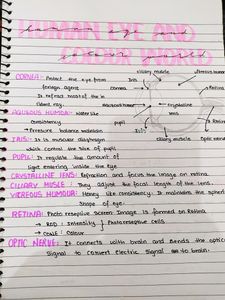 HUMAN EYE AND
COLOUR WORLD
ciliary muscle
CORNEA: Protect the eye from
foreign agent
It refract most of the
light ray.
cornea
Iris
Retina
Crystalline
lens
AQUEOUS HUMOR: water like
consistency
→ Pressure balance maintain
pupil
Iris
ciliary muscle
Optic nerve
IRIS: It is muscular diaphragm
which control the size of pupil
PUPIL: It regulate the amount of
light entering inside the eye
CRYSTALLINE LENS: Refraction and focus the image on retina
CILIARY MUSLE: They adjust the focal length of the lens.
VITREOUS HOMOUR: Honey like consistency. It maintains the
shape of eye.
RETINA: Photo receptive Screen Image is formed on Retina
→ ROD: Intensity } Photoreceptive cells
→ CONE: Colour
OPTIC NERVE: It connects with brain and sends the optic
Signal to convert electric Signal to brain.